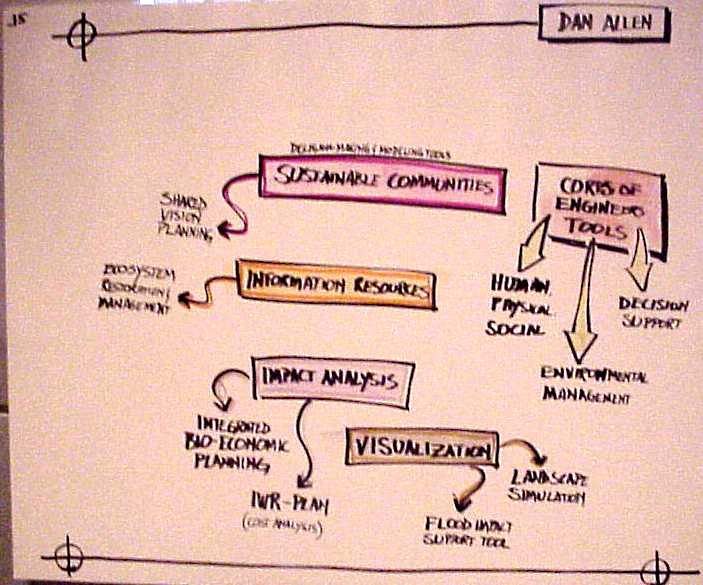 .15
DAN ALLEN
DECISION-MAKING & MODELING TOOLS
SUSTAINABLE COMMUNITIES
SHARED
VISION
PLANNING
CORPS OF
TOOLS
HUMAN,
PHYSICAL
SOCIAL
DECISION
SUPPORT
ENVIRONMENTAL
MANAGEMENT
INFORMATION RESOURCES
ECOSYSTEM
MANAGEMENT
IMPACT ANALYSIS
INTEGRATED
BIO-ECONOMIC
PLANNING
IWR-PLAN
(COST ANALYSIS)
VISUALIZATION
LANDSCAPE
SIMULATION
FLOOD IMPACT
SUPPORT TOOL